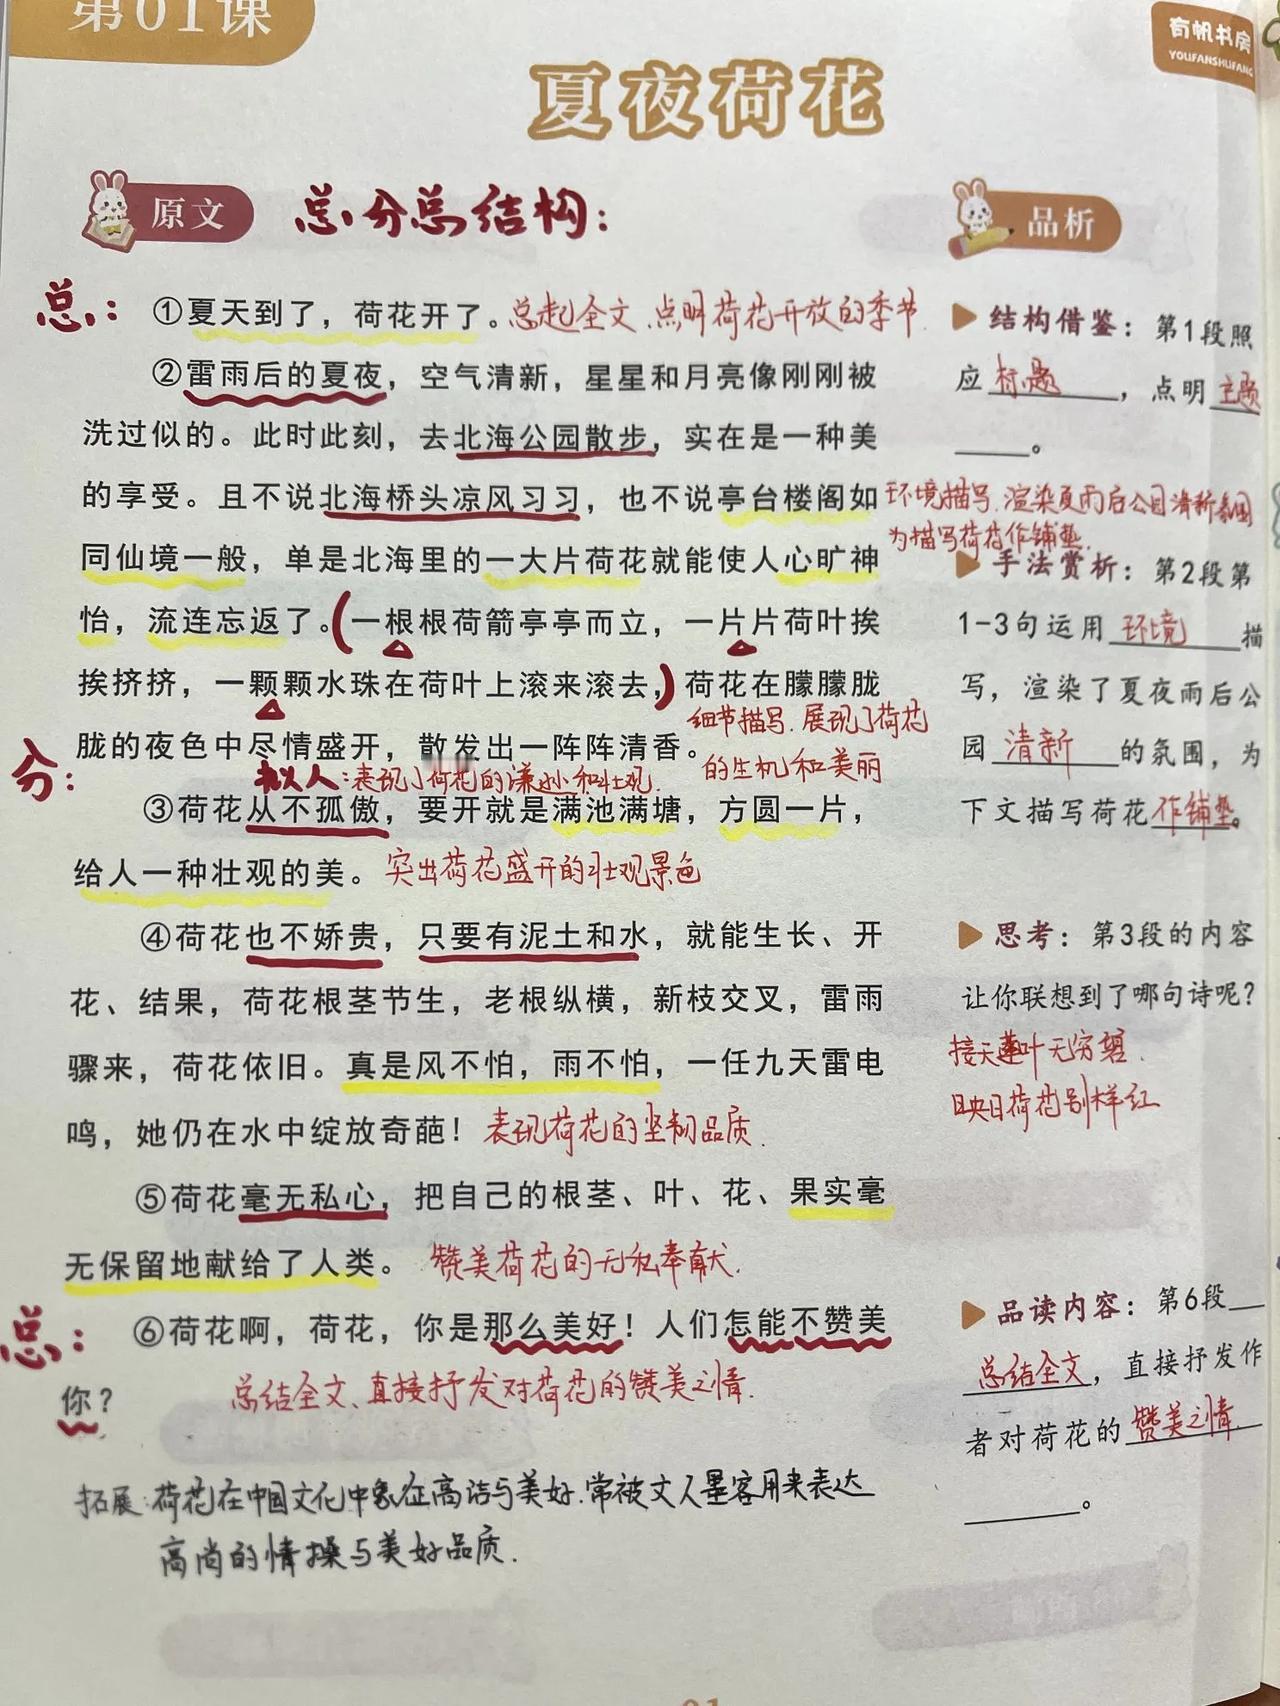 第01课
有帆书房
YOUFANSHUFANG
夏夜荷花
原文
总分总结构：
总：
①夏天到了，荷花开了。
总起全文、点明荷花开放的季节
②雷雨后的夏夜，空气清新，星星和月亮像刚刚被
洗过似的。此时此刻，去北海公园散步，实在是一种美
的享受。且不说北海桥头凉风习习，也不说亭台楼阁如
环境描写，渲染夏雨后公园清新氛围
为描写荷花作铺垫.
同仙境一般，单是北海里的一大片荷花就能使人心旷神
怡，流连忘返了。（一根根荷箭亭亭而立，一片片荷叶挨
挨挤挤，一颗颗水珠在荷叶上滚来滚去，）荷花在朦朦胧
细节描写.展现了荷花
胧的夜色中尽情盛开，散发出一阵阵清香。
的生机和美丽
分：
拟人：表现了荷花的谦逊和壮观.
③荷花从不孤傲，要开就是满池满塘，方圆一片，
给人一种壮观的美。
突出荷花盛开的壮观景色
④荷花也不娇贵，只要有泥土和水，就能生长、开
花、结果，荷花根茎节生，老根纵横，新枝交叉，雷雨
骤来，荷花依旧。真是风不怕，雨不怕，一任九天雷电
鸣，她仍在水中绽放奇葩！
表现荷花的坚韧品质.
⑤荷花毫无私心，把自己的根茎、叶、花、果实毫
无保留地献给了人类。
赞美荷花的无私奉献.
总：
⑥荷花啊，荷花，你是那么美好！人们怎能不赞美
你？
总结全文、直接抒发对荷花的赞美之情.
拓展：荷花在中国文化中象征高洁与美好.常被文人墨客用来表达
高尚的情操与美好品质.
品析
结构借鉴：第1段照
应标题，点明主题
。
手法赏析：第2段第
1-3句运用环境描
写，渲染了夏夜雨后公
园清新的氛围，为
下文描写荷花作铺垫。
思考：第3段的内容
让你联想到了哪句诗呢？
接天莲叶无穷碧.
映日荷花别样红
品读内容：第6段
总结全文，直接抒发作
者对荷花的赞美之情.
。
01